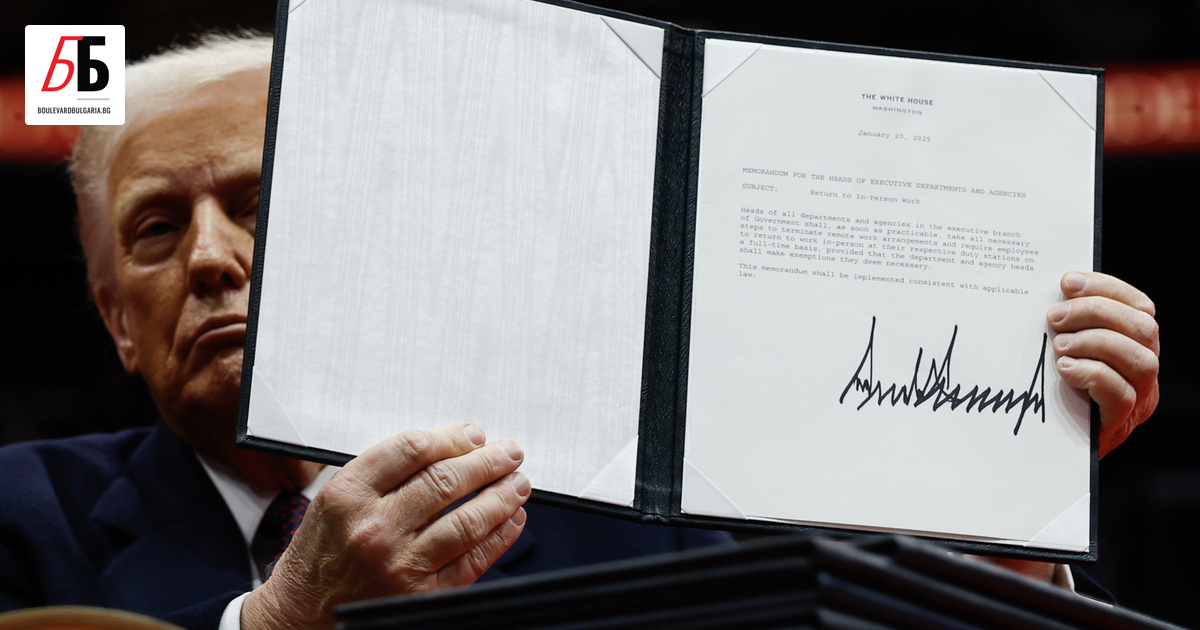 бБ
BOULEVARDBULGARIA.BG
THE WHITE HOUSE
WASHINGTON
January 20, 2025
MEMORANDUM FOR THE HEADS OF EXECUTIVE DEPARTMENTS AND AGENCIES
SUBJECT: Return to In-Person Work
Heads of all departments and agencies in the executive branch
of Government shall, as soon as practicable, take all necessary
steps to terminate remote work arrangements and require employees
to return to work in-person at their respective duty stations on
a full-time basis, provided that the department and agency heads
shall make exemptions they deem necessary.
This memorandum shall be implemented consistent with applicable
law.